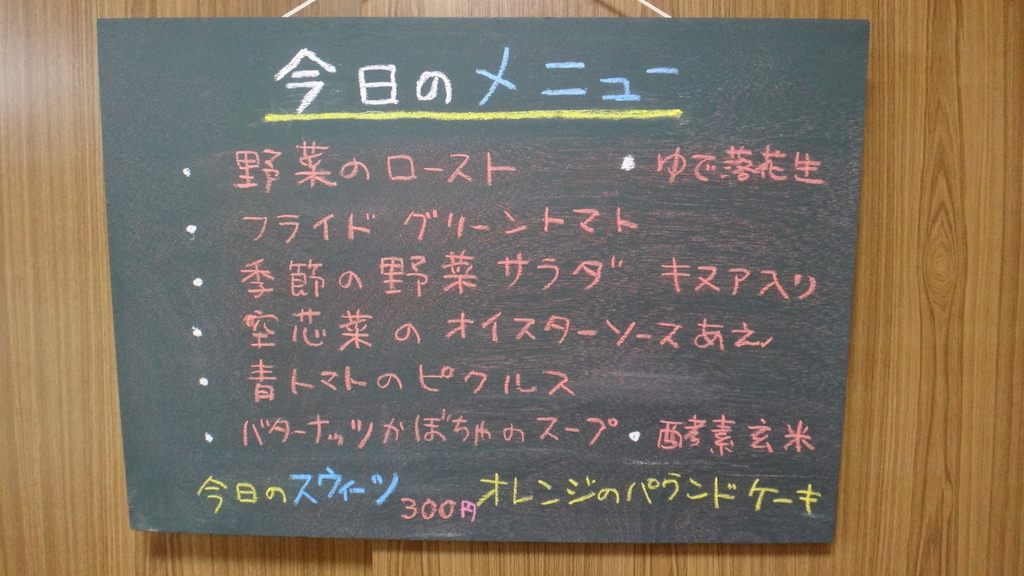 今日のメニュー
・野菜のロースト ・ゆで落花生
・フライド グリーントマト
・季節の野菜サラダ キヌア入り
・空芯菜のオイスターソースあえ
・青トマトのピクルス
・バターナッツかぼちゃのスープ ・酵素玄米
今日のスウィーツ 300円 オレンジのパウンドケーキ